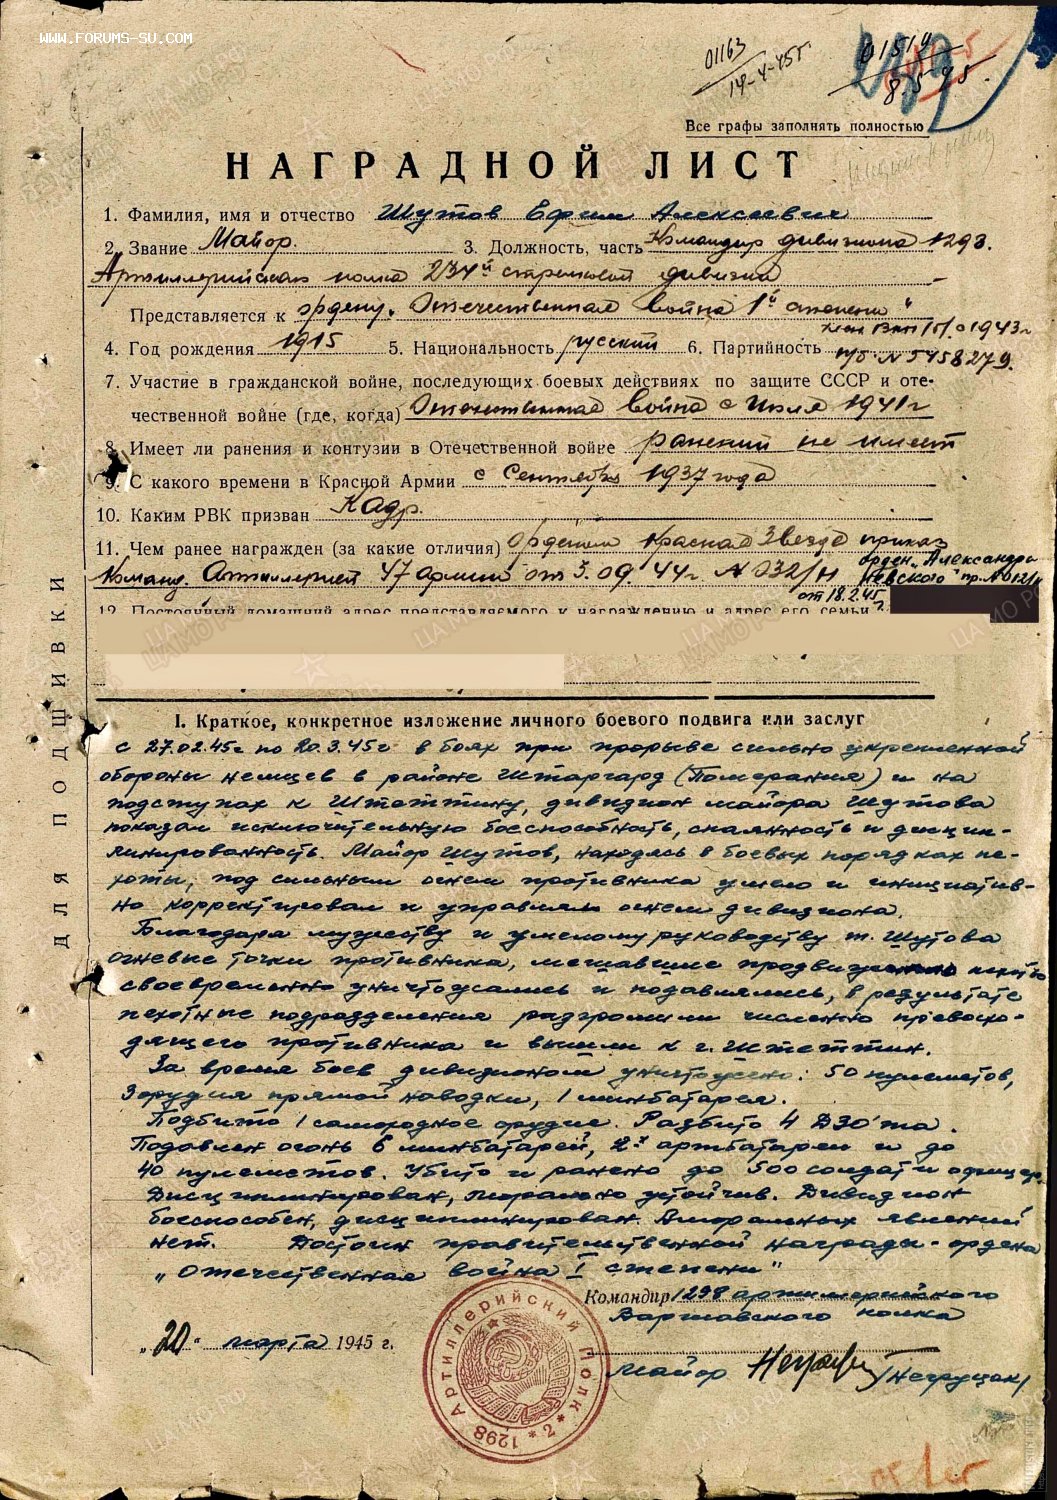 www.forums-su.com
01163
14-4-45г
01514
8.5.45.
Все графы заполнять полностью
НАГРАДНОЙ ЛИСТ
1. Фамилия, имя и отчество Шутов Ефим Алексеевич
2. Звание Майор. 3. Должность, часть Командир дивизиона 1298.
Артиллерийская полка 234й стрелковой дивизии
Представляется к ордену „Отечественная война 1й степени"
член ВКП/б/ с 1943г
4. Год рождения 1915 5. Национальность русский 6. Партийность п/б N 5458279.
7. Участие в гражданской войне, последующих боевых действиях по защите СССР и оте-
чественной войне (где, когда) Отечественная война с Июля 1941г
8. Имеет ли ранения и контузии в Отечественной войне ранений не имеет
9. С какого времени в Красной Армии с Сентября 1937 года
10. Каким РВК призван Кадр.
11. Чем ранее награжден (за какие отличия) Орденом Красная Звезда приказ
Команд. Артиллерией 47 армии от 3.09.44г N 032/н орден „Александра
Невского" пр. N 012/н
от 18.2.45г.
12. Постоянный домашний адрес представляемого к награждению и адрес его семьи
ДЛЯ ПОДШИВКИ
I. Краткое, конкретное изложение личного боевого подвига или заслуг
с 27.02.45г по 20.3.45г в боях при прорыве сильно укрепленной
обороны немцев в районе Штаргард (Померания) и на
подступах к Штеттину, дивизион майора Шутова
показал исключительную боеспособность, спаянность и дисцип-
линированность. Майор Шутов, находясь в боевых порядках пе-
хоты, под сильным огнем противника умело и инициатив-
но корректировал и управлял огнем дивизиона.
Благодаря мужеству и умелому руководству т. Шутова
огневые точки противника, мешавшие продвижению пехоты
своевременно уничтожались и подавлялись, в результате
пехотные подразделения разгромили численно превосхо-
дящего противника и вышли к г. Штеттин.
За время боев дивизионом уничтожено: 50 пулеметов,
3 орудия прямой наводки, 1 минбатарея.
Подбито 1 самоходное орудие. Разбито 4 ДЗО'та.
Подавлен огонь 6 минбатарей, 2х артбатареи и до
40 пулеметов. Убито и ранено до 500 солдат и офицер.
Дисциплинирован, морально устойчив. Дивизион
боеспособен, дисциплинирован. Аморальных явлений
нет. Достоин правительственной награды - ордена
„Отечественная война I степени"
Командир 1298 артиллерийского
Варшавского полка
„20" марта 1945 г.
майор /Негруцак/
1298 Артиллерийский Полк * 2 *